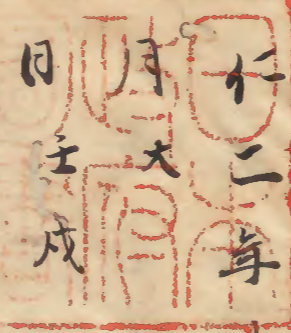 仁二年
月大
日壬戌